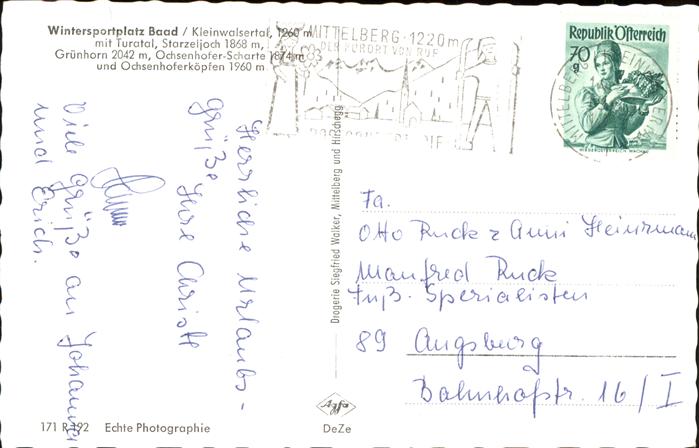 Wintersportplatz Baad / Kleinwalsertal, 1260 m
mit Turatal, Starzeljoch 1868 m,
Grünhorn 2042 m, Ochsenhofer-Scharte 1874 m
und Ochsenhoferköpfen 1960 m
MITTELBERG · 1220 m
DER KURORT VON RUF
Republik Österreich
70
g
NIEDERÖSTERREICH · WACHAU
Herrliche Urlaubs-
grüße Ihre Christl
Viele Grüße an Johannes
und Erich.
Drogerie Siegfried Walker, Mittelberg und Hirschegg
Fa.
Otto Ruck z Anni Heinzmann
Manfred Ruck
Fuß. Spezialisten
89 Augsburg
Bahnhofstr. 16/I
171 R 192 Echte Photographie
Agfa
DeZe